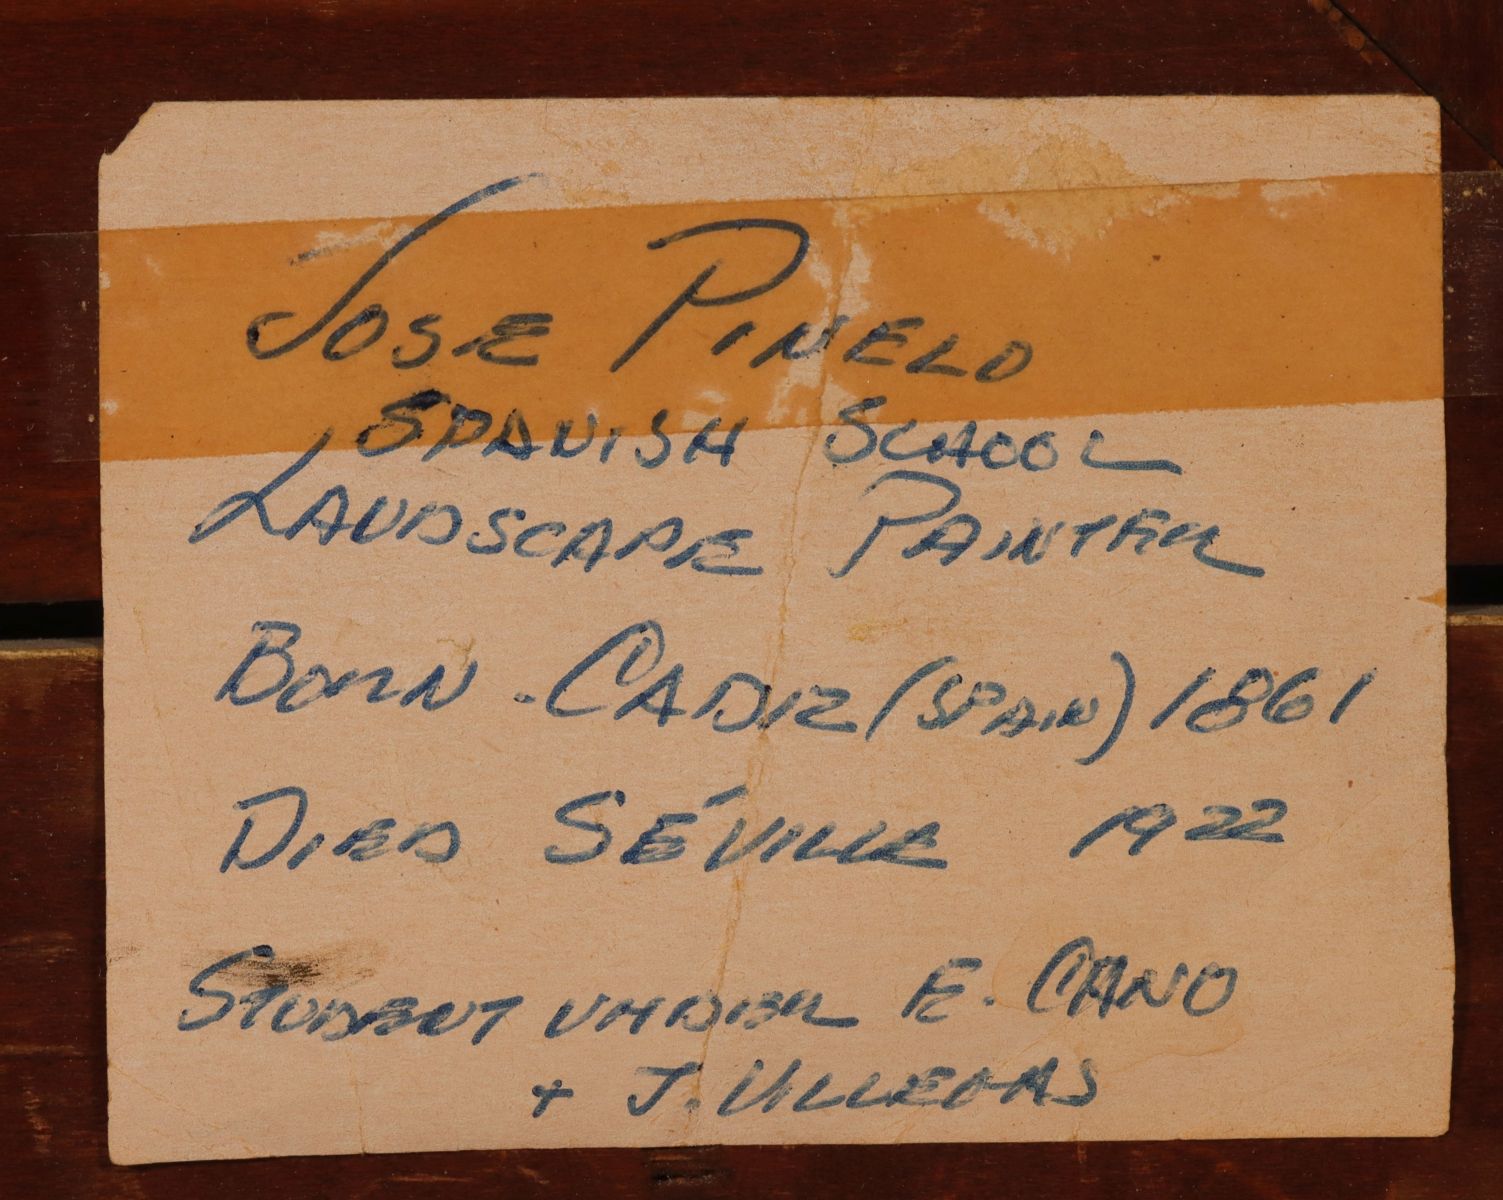 JOSE PINELO
SPANISH SCHOOL
LANDSCAPE PAINTER
BORN - CADIZ (SPAIN) 1861
DIED SÉVILLE 1922
STUDENT UNDER E. CANO
+ J. VILLEGAS